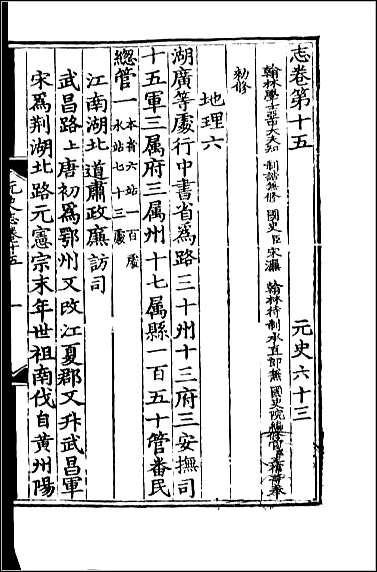 志卷第十五 元史六十三
翰林學士亞中大夫知 制誥兼修 國史臣宋濂 翰林待制承直郎兼 國史院編修官臣王禕等奉
勑修
地理六
湖廣等處行中書省爲路三十州十三府三安撫司
十五軍三属府三属州十七属縣一百五十管番民
總管一 本省六站一百處 水站七十三處
江南湖北道肅政廉訪司
武昌路上唐初爲鄂州又改江夏郡又升武昌軍
宋爲荆湖北路元憲宗末年世祖南伐自黄州陽
元史志卷十五 一